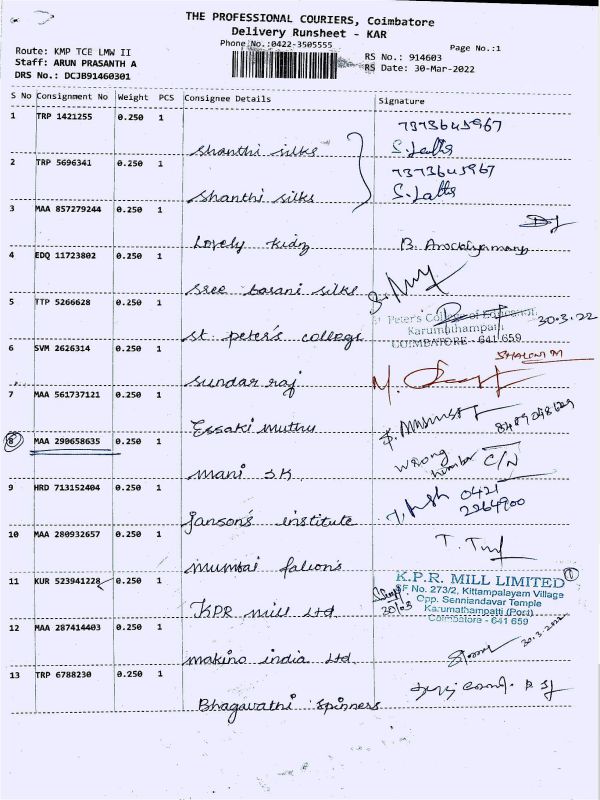 THE PROFESSIONAL COURIERS, Coimbatore
Delivery Runsheet - KAR
Phone No.:0422-3505555
Page No.:1
Route: KMP TCE LMW II
Staff: ARUN PRASANTH A
DRS No.: DCJB91460301
RS No.: 914603
RS Date: 30-Mar-2022
S No Consignment No Weight PCS Consignee Details Signature
1 TRP 1421255 0.250 1 Shanthi silks 7373645967 S. Latha
2 TRP 5696341 0.250 1 Shanthi silks 7373645967 S. Latha
3 MAA 857279244 0.250 1 Lovely kidz
4 EDQ 11723802 0.250 1 Sree basani silks
5 TTP 5266628 0.250 1 St peter's college
St Peter's College of Education
Karumathampatti
COIMBATORE - 641 659
30.3.22
6 SVM 2626314 0.250 1 Sundar raj
SHALONI M
7 MAA 561737121 0.250 1 Essaki Muthu
8 MAA 290658635 0.250 1 Mani S.K wrong number C/N
9 HRD 713152404 0.250 1 Janson's institute 0421 2264900
10 MAA 280932657 0.250 1 Mumbai falcons
11 KUR 523941228 0.250 1 KPR Mill Ltd
K.P.R. MILL LIMITED
SF No. 273/2, Kittampalayam Village
Opp. Senniandavar Temple
Karumathampatti (Post)
Coimbatore - 641 659
12 MAA 287414403 0.250 1 Makino india Ltd 30.3.2022
13 TRP 6788230 0.250 1 Bhagavathi Spinners